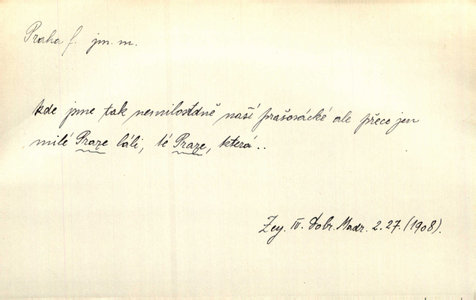 Praha f. jm. m.
kde jsme tak nemilostdně naší prašosácké ale přece jen
milé Praze láli, té Praze, která..
Zey. IV. Dobr. Madr. 2. 27. (1908).